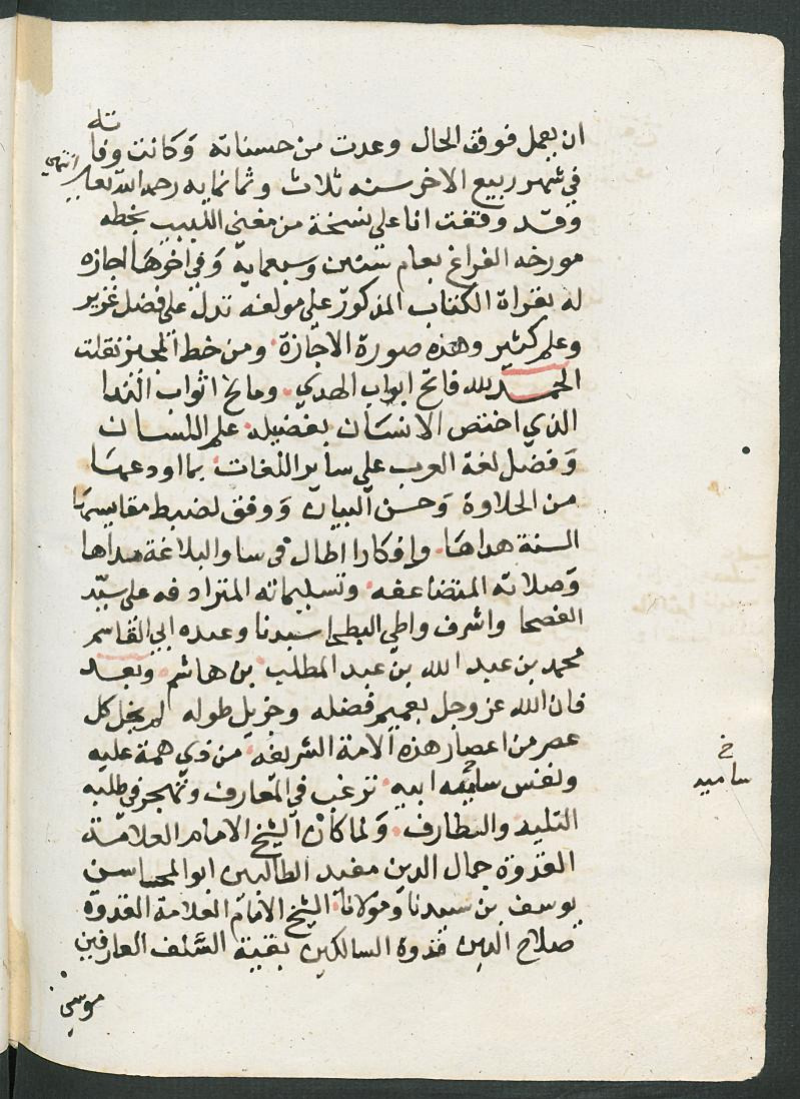 ان يعمل فوق الحال وعدت من حسناته وكانت وفاته
في شهر ربيع الاخر سنه ثلاث وثمانمايه رحمه الله تعالى انتهى
وقد وقفت انا على نسخة من مغني اللبيب بخطه
مورخه الفراغ بعام ستين وسبعماية وفي اخوها اجازه
له بقراة الكتاب المذكور على مولفه تدل على فضل غزير
وعلم كثير وهذه صورة الاجازة ومن خط المجيز نقلت
الحمد لله فاتح ابواب الهدي ومانح اثواب الندا
الذي اختص الانسان بفضيله علم اللسان
وفضل لغة العرب على ساير اللغات بما اودعها
من الحلاوة وحسن البيان ووفق لضبط مقاييسها
السنة هداها وافكارا اطال في ساو البلاغة مداها
وصلاته المتضاعفه وتسليماته المترادفه على سيد
الفصحا واشرف واطي البطحا سيدنا وعبده ابي القاسم
محمد بن عبد الله بن عبد المطلب بن هاشم وبعد
فان الله عز وجل بعميم فضله وجزيل طوله لم يخل كل
عصر من اعصار هذه الامة الشريفه من ذي همة عليه
ونفس ساميه ابيه ترغب في المعارف وتهجر في طلبه
التليد والطارف ولما كان الشيخ الامام العلامة
القدوة جمال الدين مفيد الطالبين ابو المحاسن
يوسف بن سيدنا ومولانا الشيخ الامام العلامة القدوة
صلاح الدين قدوة السالكين بقية السلف العارفين
موسى
خ
ساميه